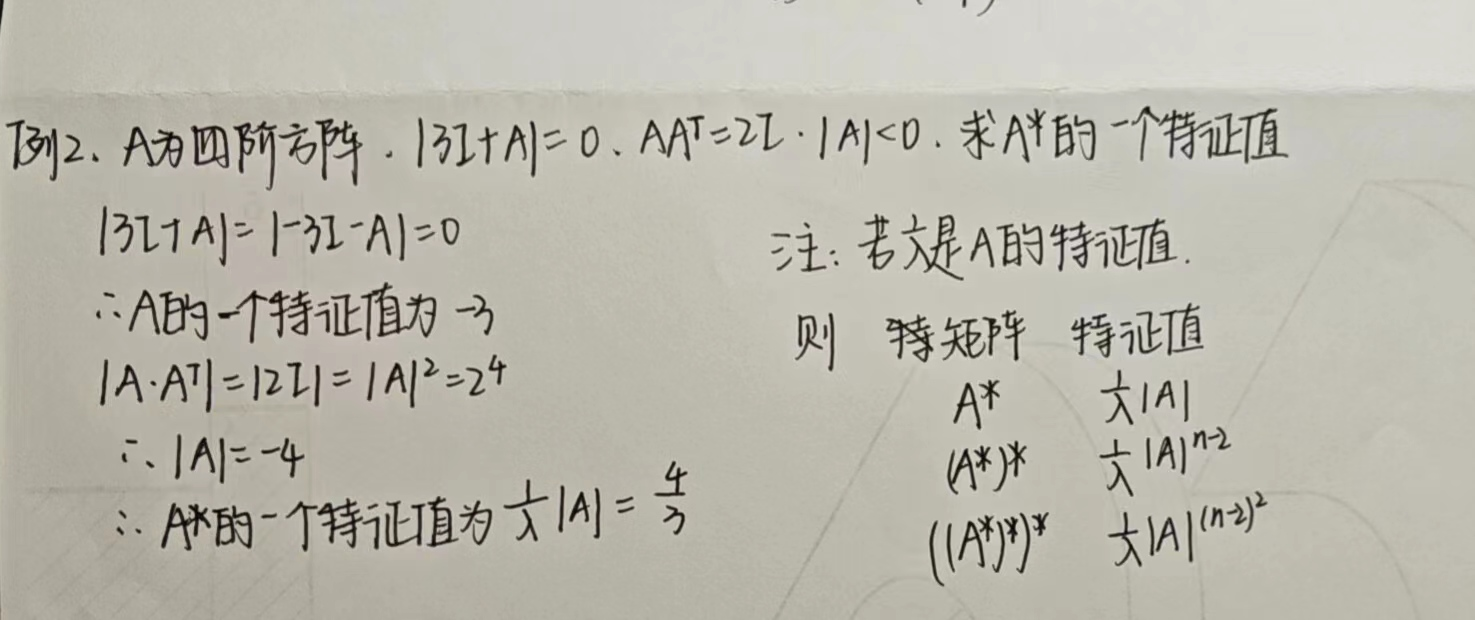 例2. A为四阶方阵. |3I+A|=0、AAᵀ=2I·|A|<0. 求A*的一个特征值
|3I+A|=|-3I-A|=0
∴A的一个特征值为-3
|A·Aᵀ|=|2I|=|A|²=2⁴
∴|A|=-4
∴A*的一个特征值为 1/λ|A|=4/3
注:若λ是A的特征值.
则 特矩阵 特征值
A* 1/λ|A|
(A*)* 1/λ|A|ⁿ⁻²
((A*)*)* 1/λ|A|^(n-2)²